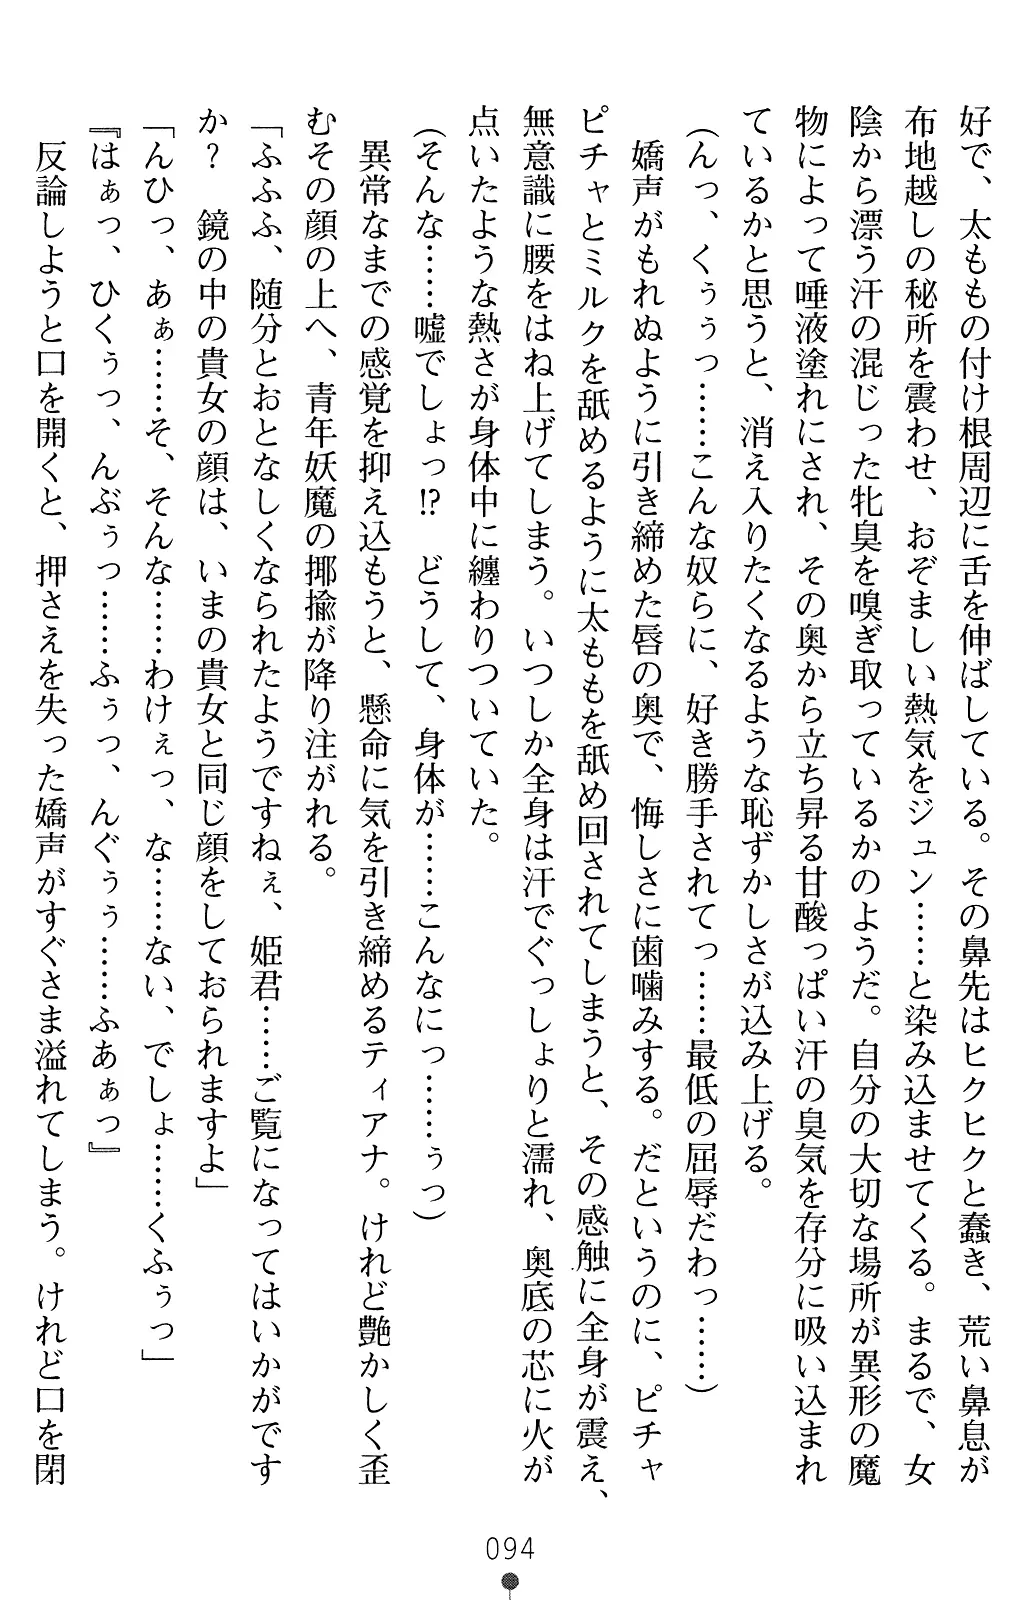 好で、太ももの付け根周辺に舌を伸ばしている。その鼻先はヒクヒクと蠢き、荒い鼻息が
布地越しの秘所を震わせ、おぞましい熱気をジュン……と染み込ませてくる。まるで、女
陰から漂う汗の混じった牝臭を嗅ぎ取っているかのようだ。自分の大切な場所が異形の魔
物によって唾液塗れにされ、その奥から立ち昇る甘酸っぱい汗の臭気を存分に吸い込まれ
ているかと思うと、消え入りたくなるような恥ずかしさが込み上げる。
(んっ、くぅぅっ……こんな奴らに、好き勝手されてっ……最低の屈辱だわっ……)
嬌声がもれぬように引き締めた唇の奥で、悔しさに歯噛みする。だというのに、ピチャ
ピチャとミルクを舐めるように太ももを舐め回されてしまうと、その感触に全身が震え、
無意識に腰をはね上げてしまう。いつしか全身は汗でぐっしょりと濡れ、奥底の芯に火が
点いたような熱さが身体中に纏わりついていた。
(そんな……嘘でしょっ!? どうして、身体が……こんなにっ……ぅっ)
異常なまでの感覚を抑え込もうと、懸命に気を引き締めるティアナ。けれど艶かしく歪
むその顔の上へ、青年妖魔の揶揄が降り注がれる。
「ふふふ、随分とおとなしくなられたようですねぇ、姫君……ご覧になってはいかがです
か? 鏡の中の貴女の顔は、いまの貴女と同じ顔をしておられますよ」
「んひっ、あぁ……そ、そんな……わけぇっ、な……ない、でしょ……くふぅっ」
『はぁっ、ひくぅっ、んぶぅっ……ふぅっ、んぐぅぅ……ふあぁっ』
反論しようと口を開くと、押さえを失った嬌声がすぐさま溢れてしまう。けれど口を閉
094